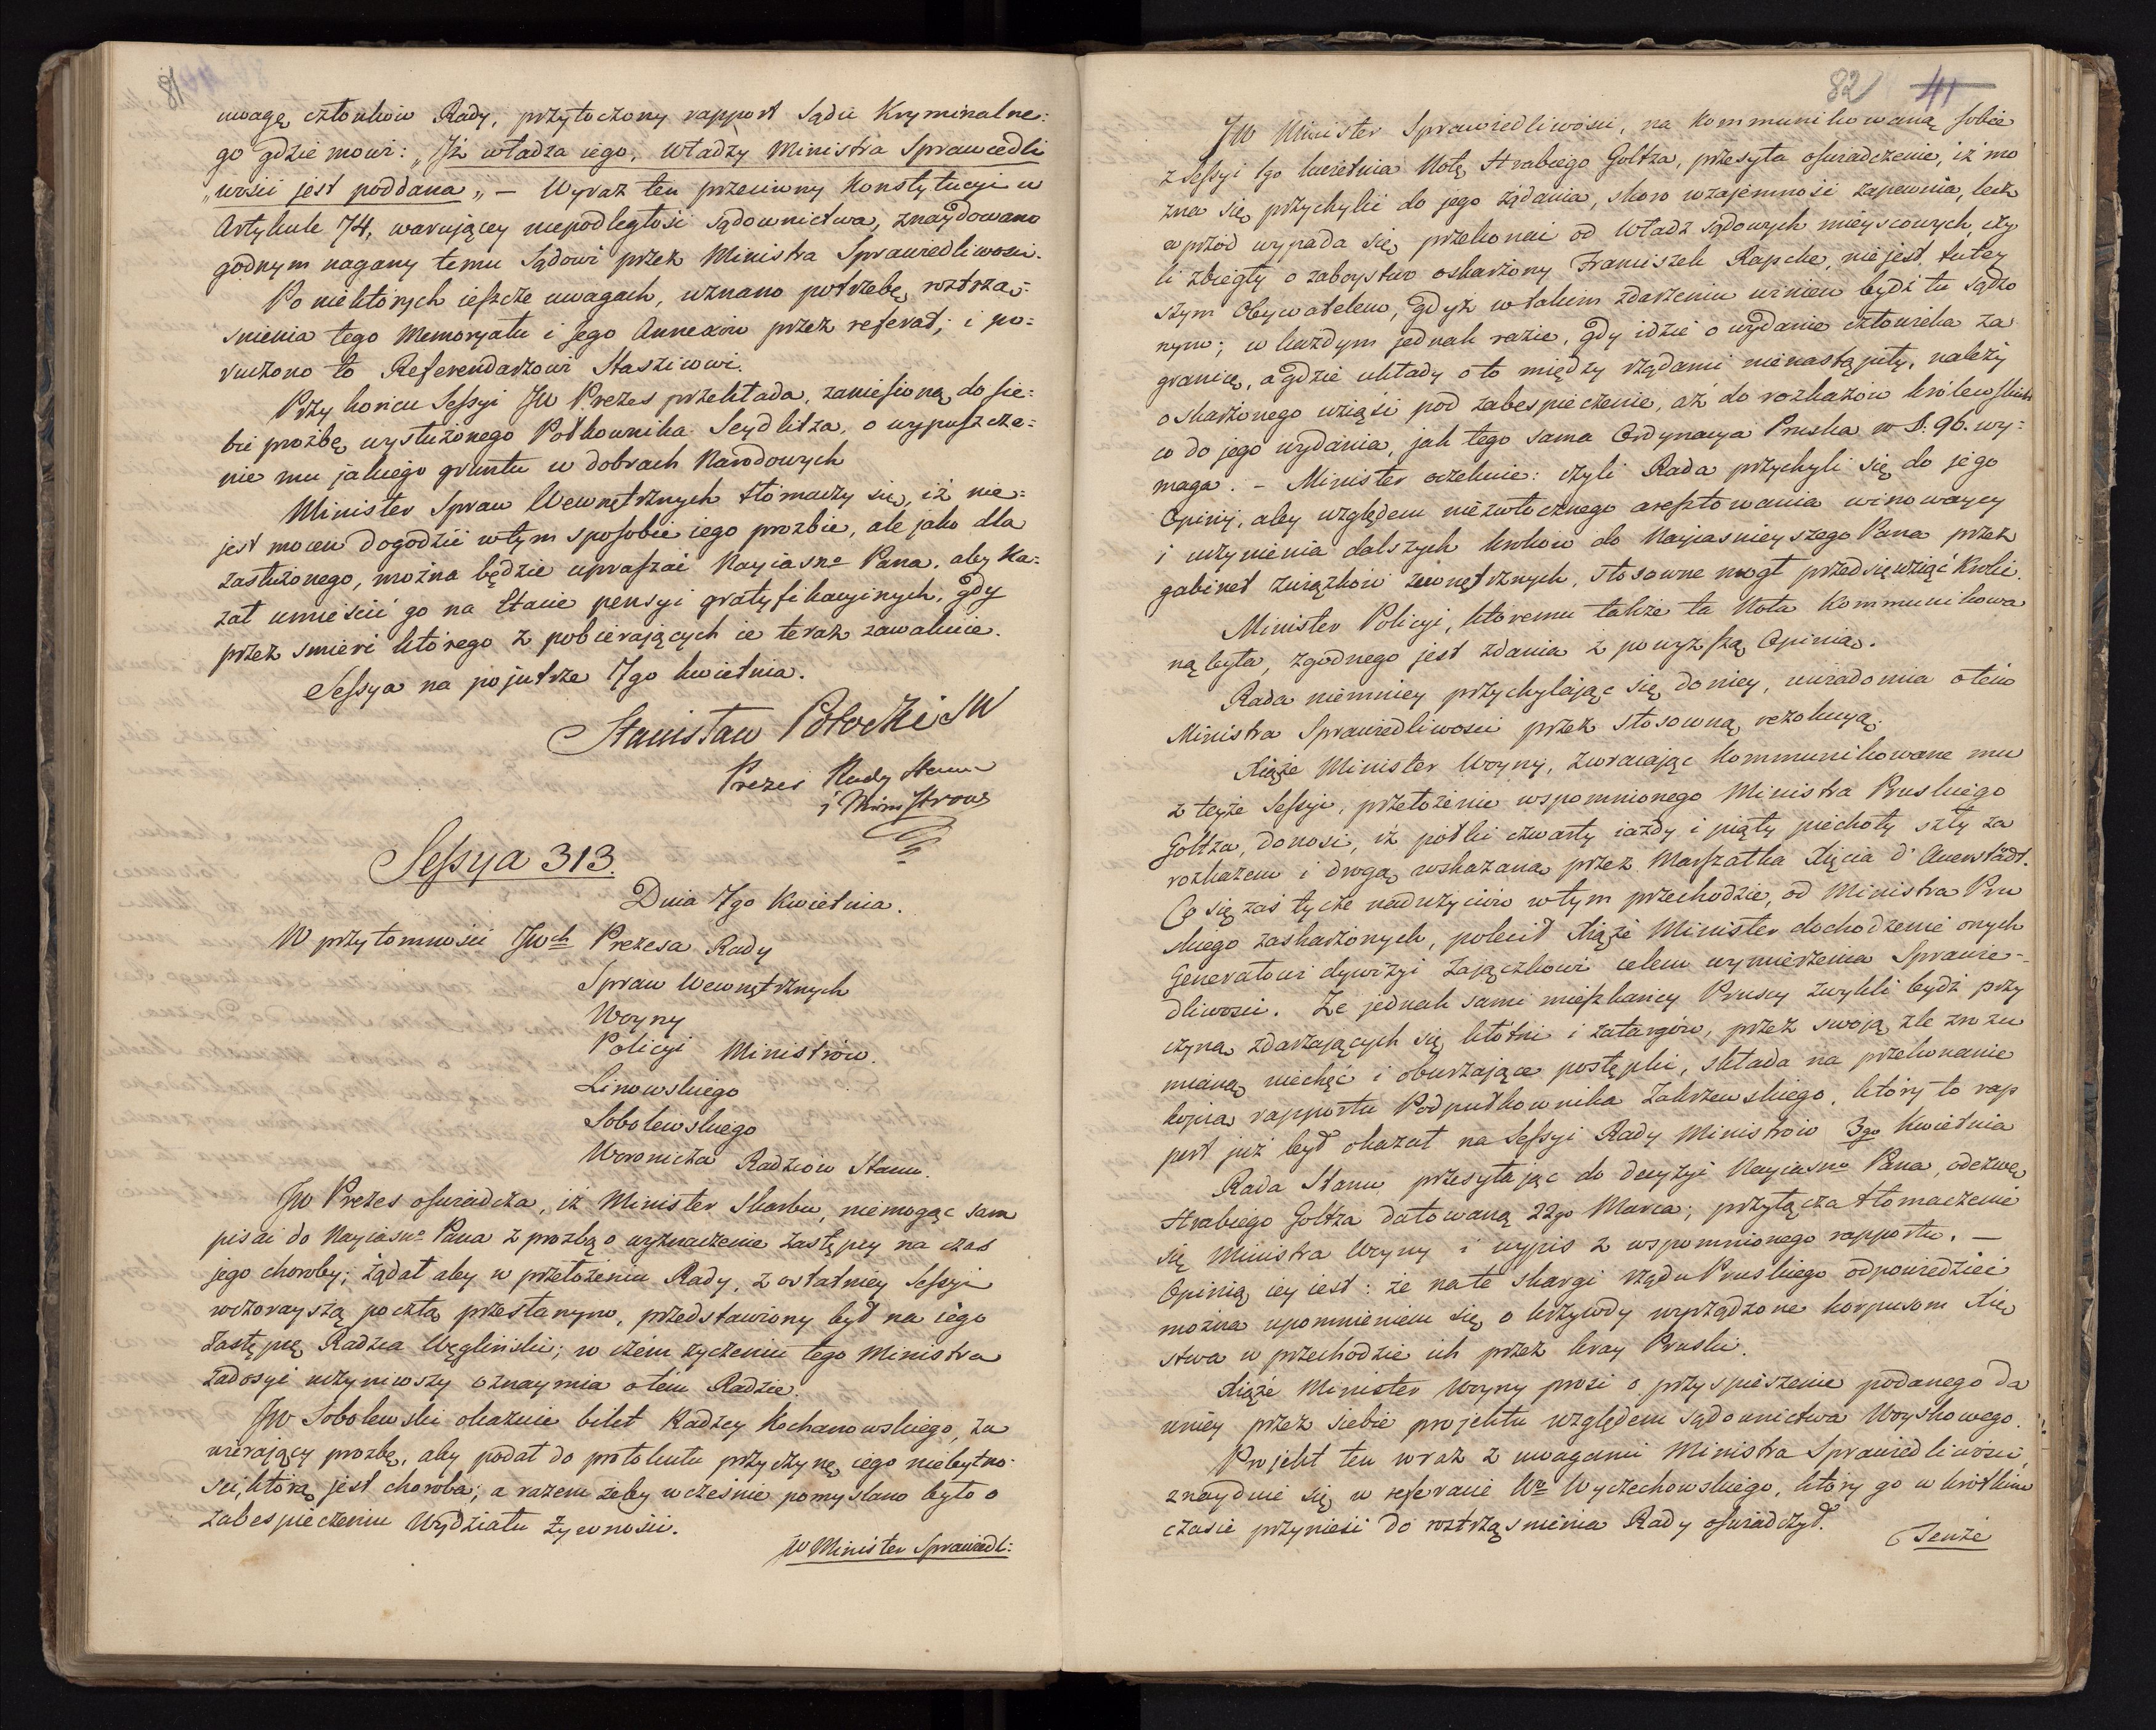 81
uwagę członków Rady, przytoczony rapport Sądu Kryminalne:
go gdzie mowi: „Iż władza iego, władzy Ministra Sprawiedli
„wości jest poddana„ — Wyraz ten przeciwny Konstytucyi w
Artykule 74, warującey niepodległość sądownictwa, znaydowano
godnym nagany temu Sądowi przez Ministra Sprawiedliwości.
Po niektórych ieszcze uwagach, uznano potrzebę roztrzą:
snienia tego Memoryału i jego Annexów przez referat; i po:
ruczono to Referendarzowi Staszicowi.
Przy końcu Sessyi JW Prezes przekłada, zaniesioną do sie:
bie prozbę wysłużonego Połkownika Seydlitza, o wypuszcze:
nie mu jakiego gruntu w dobrach Narodowych
Minister Spraw Wewnętrznych tłomaczy się, iż nie:
jest mocen dogodzić wtym sposobie iego prozbie, ale jako dla
zasłużonego, można będzie upraszać Nayiasno Pana, aby ka:
zał umieścić go na Etacie pensyi gratyfikacyinych, gdy
przez smierć którego z pobierających ie teraz zawakuie.
Sessya na pojutrze 7go kwietnia.
Stanisław Potocki SW
Prezes Rady Stanu
i Ministrow
Sessya 313.
Dnia 7go Kwietnia.
W przytomności JWch Prezesa Rady
Spraw Wewnętrznych
Woyny
Policyi Ministrów.
Linowskiego
Sobolewskiego
Woronicza Radzców Stanu.
JW Prezes oswiadcza, iż Minister Skarbu, niemogąc sam
pisać do Nayiasno Pana z prozbą o wyznaczenie zastępcy na czas
jego choroby; żądał aby w przełożeniu Rady, z ostatniey Sessyi
wczorayszą pocztą przesłanym, przedstawiony był na iego
zastępcę Radzca Węgliński; w czém życzeniu tego Ministra
zadosyć uczyniwszy oznaymia otém Radzie.
JW Sobolewski okazuie bilet Radzcy Kochanowskiego, za
wierający prozbę, aby podał do protokułu przyczynę iego niebytno:
sci, którą jest choroba; a razem żeby wcześnie pomyslano było o
zabespieczeniu Wydziału Żywności.
JW Minister Sprawiedl:
82 41
JW Minister Sprawiedliwości, na kommunikowaną sobie
z Sessyi 1go kwietnia Notę Hrabiego Goltza, przesyła oswiadczenie, iż mo
zna się przychylić do jego żądania, skoro wzajemność zapewnia, lecz
wprzód wypada się przekonać od Władz sądowych mieyscowych, czy
li zbiegły o zaboystwo oskarżony Franciszek Rapcke, nie jest tutey
szym Obywatelem, gdyż w takim zdarzeniu winien bydź tu sądzo
nym; w każdym jednak razie, gdy idzie o wydanie człowieka za
granicę, a gdzie układy oto między rządami nienastąpiły, należy
oskarżonego wziąść pod zabespieczenie, aż do rozkazów królewskich
co do jego wydania, jak tego sama Ordynacya Pruska w §. 96. wy:
maga. – Minister oczekuie: czyli Rada przychyli się do jego
Opinij, aby względem niezwłocznego aresztowania winowaycy
i uczynienia dalszych kroków do Nayiasnieyszego Pana przez
gabinet związków zewnętrznych, stosowne mógł przedsięwziąć kroki.
Minister Policyi, któremu także ta Nota Kommunikowa
ną była, zgodnego jest zdania z powyższą Opinią.
Rada niemniey przychylając się doniey, uwiadomia otém
Ministra Sprawiedliwości przez stosowną rezolucyą.
Xiąże Minister Woyny, zwracając kommunikowane mu
z teyże Sessyi, przełożenie wspomnionego Ministra Pruskiego
Goltza, donosi, iż połki czwarty iazdy i piąty piechoty szły za
rozkazem i drogą wskazaną przez Marszałka Xięcia d'Auerstädt.
Co się zaś tycze nadużyciów wtym przechodzie, od Ministra Pru
skiego zaskarżonych, polecił Xiąże Minister dochodzenie onych
Generałowi dywizyi Zajączkowi celem wymierzenia Sprawie-
dliwości. Że jednak sami mieszkańcy Pruscy zwykli bydź przy
czyną zdarzających się kłótni i zatargów, przez swoją źle zrozu
mianą niechęć i oburzające postępki, składa na przekonanie
kopią rapportu Podpułkownika Zakrzewskiego, który to rap
port już był okazał na Sessyi Rady Ministrów 3go Kwietnia
Rada Stanu przesyłając do decyzyi Nayiasno Pana, odezwę
Hrabiego Goltza datowaną 22go Marca; przyłącza tłomaczenie
się Ministra Woyny i wypis z wspomnionego rapportu. —
Opinią iey iest: że na te skargi rządu Pruskiego odpowiedzieć
można upomnieniem się o krzywdy wyrządzone korpusom Xię
stwa w przechodzie ich przez kray Pruski.
Xiąże Minister Woyny prosi o przyspieszenie podanego da
wniey przez siebie projektu względem sądownictwa Woyskowego.
Projekt ten wraz z uwagami Ministra Sprawiedliwości,
znayduie się w referacie Wo Wyczechowskiego, który go w krótkim
czasie przynieść do roztrząsnienia Rady oswiadczył.
Tenże